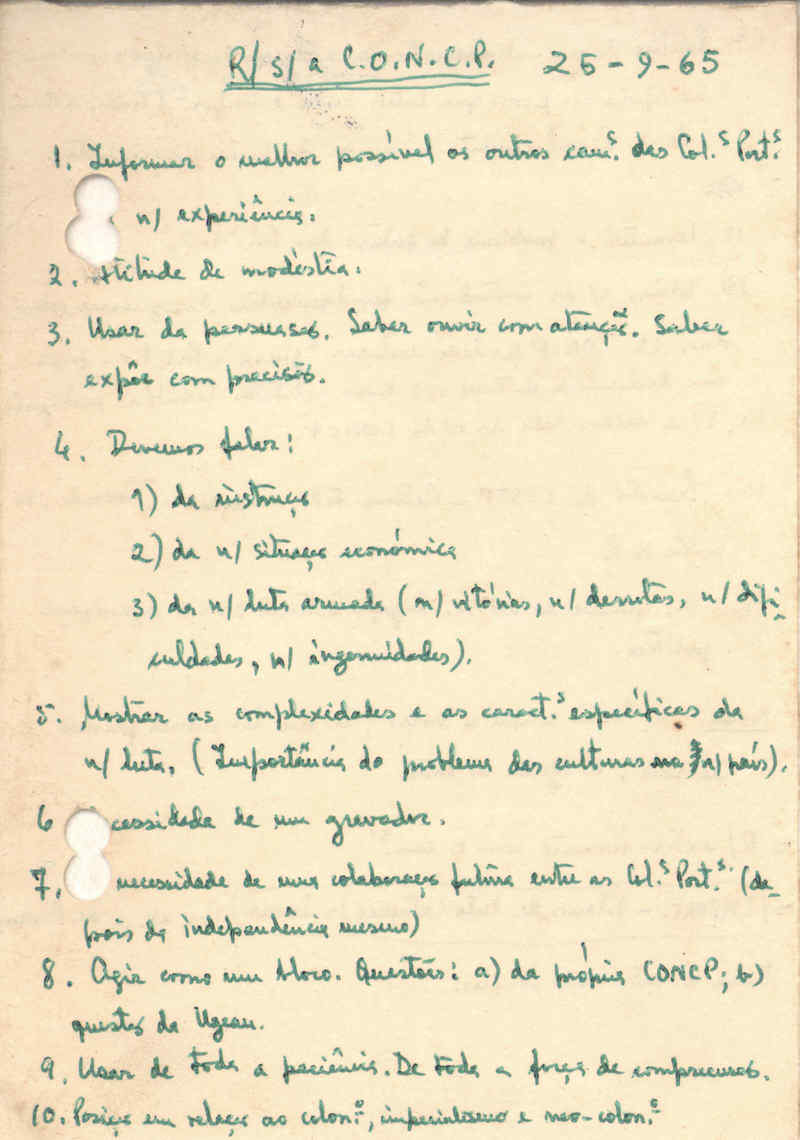 R/ s/ a C.O.N.C.P. 25-9-65
1. Informar o melhor possível os outros cam.s das Col.s Port.s
n/ experiência.
2. Atitude de modéstia.
3. Usar da persuasão. Saber ouvir com atenção. Saber
expôr com precisão.
4. Devemos falar:
1) da instrução
2) da n/ situação económica
3) da n/ luta armada (n/ vitórias, n/ derrotas, n/ difi-
culdades, n/ ingenuidades).
5. Mostrar as complexidades e as caract.s específicas da
n/ luta. (Importância do problema das culturas no n/ país).
6 cessidade de um gravador.
7. necessidade de uma colaboração futura entre as Col.s Port.s (de-
pois da independência mesmo)
8. Agir como um bloco. Questões: a) da própria CONCP; b)
questão da Ugean.
9. Usar de toda a paciência. De toda a força de compreensão.
10. Posição em relação ao colon.o, imperialismo e neo-colon.o